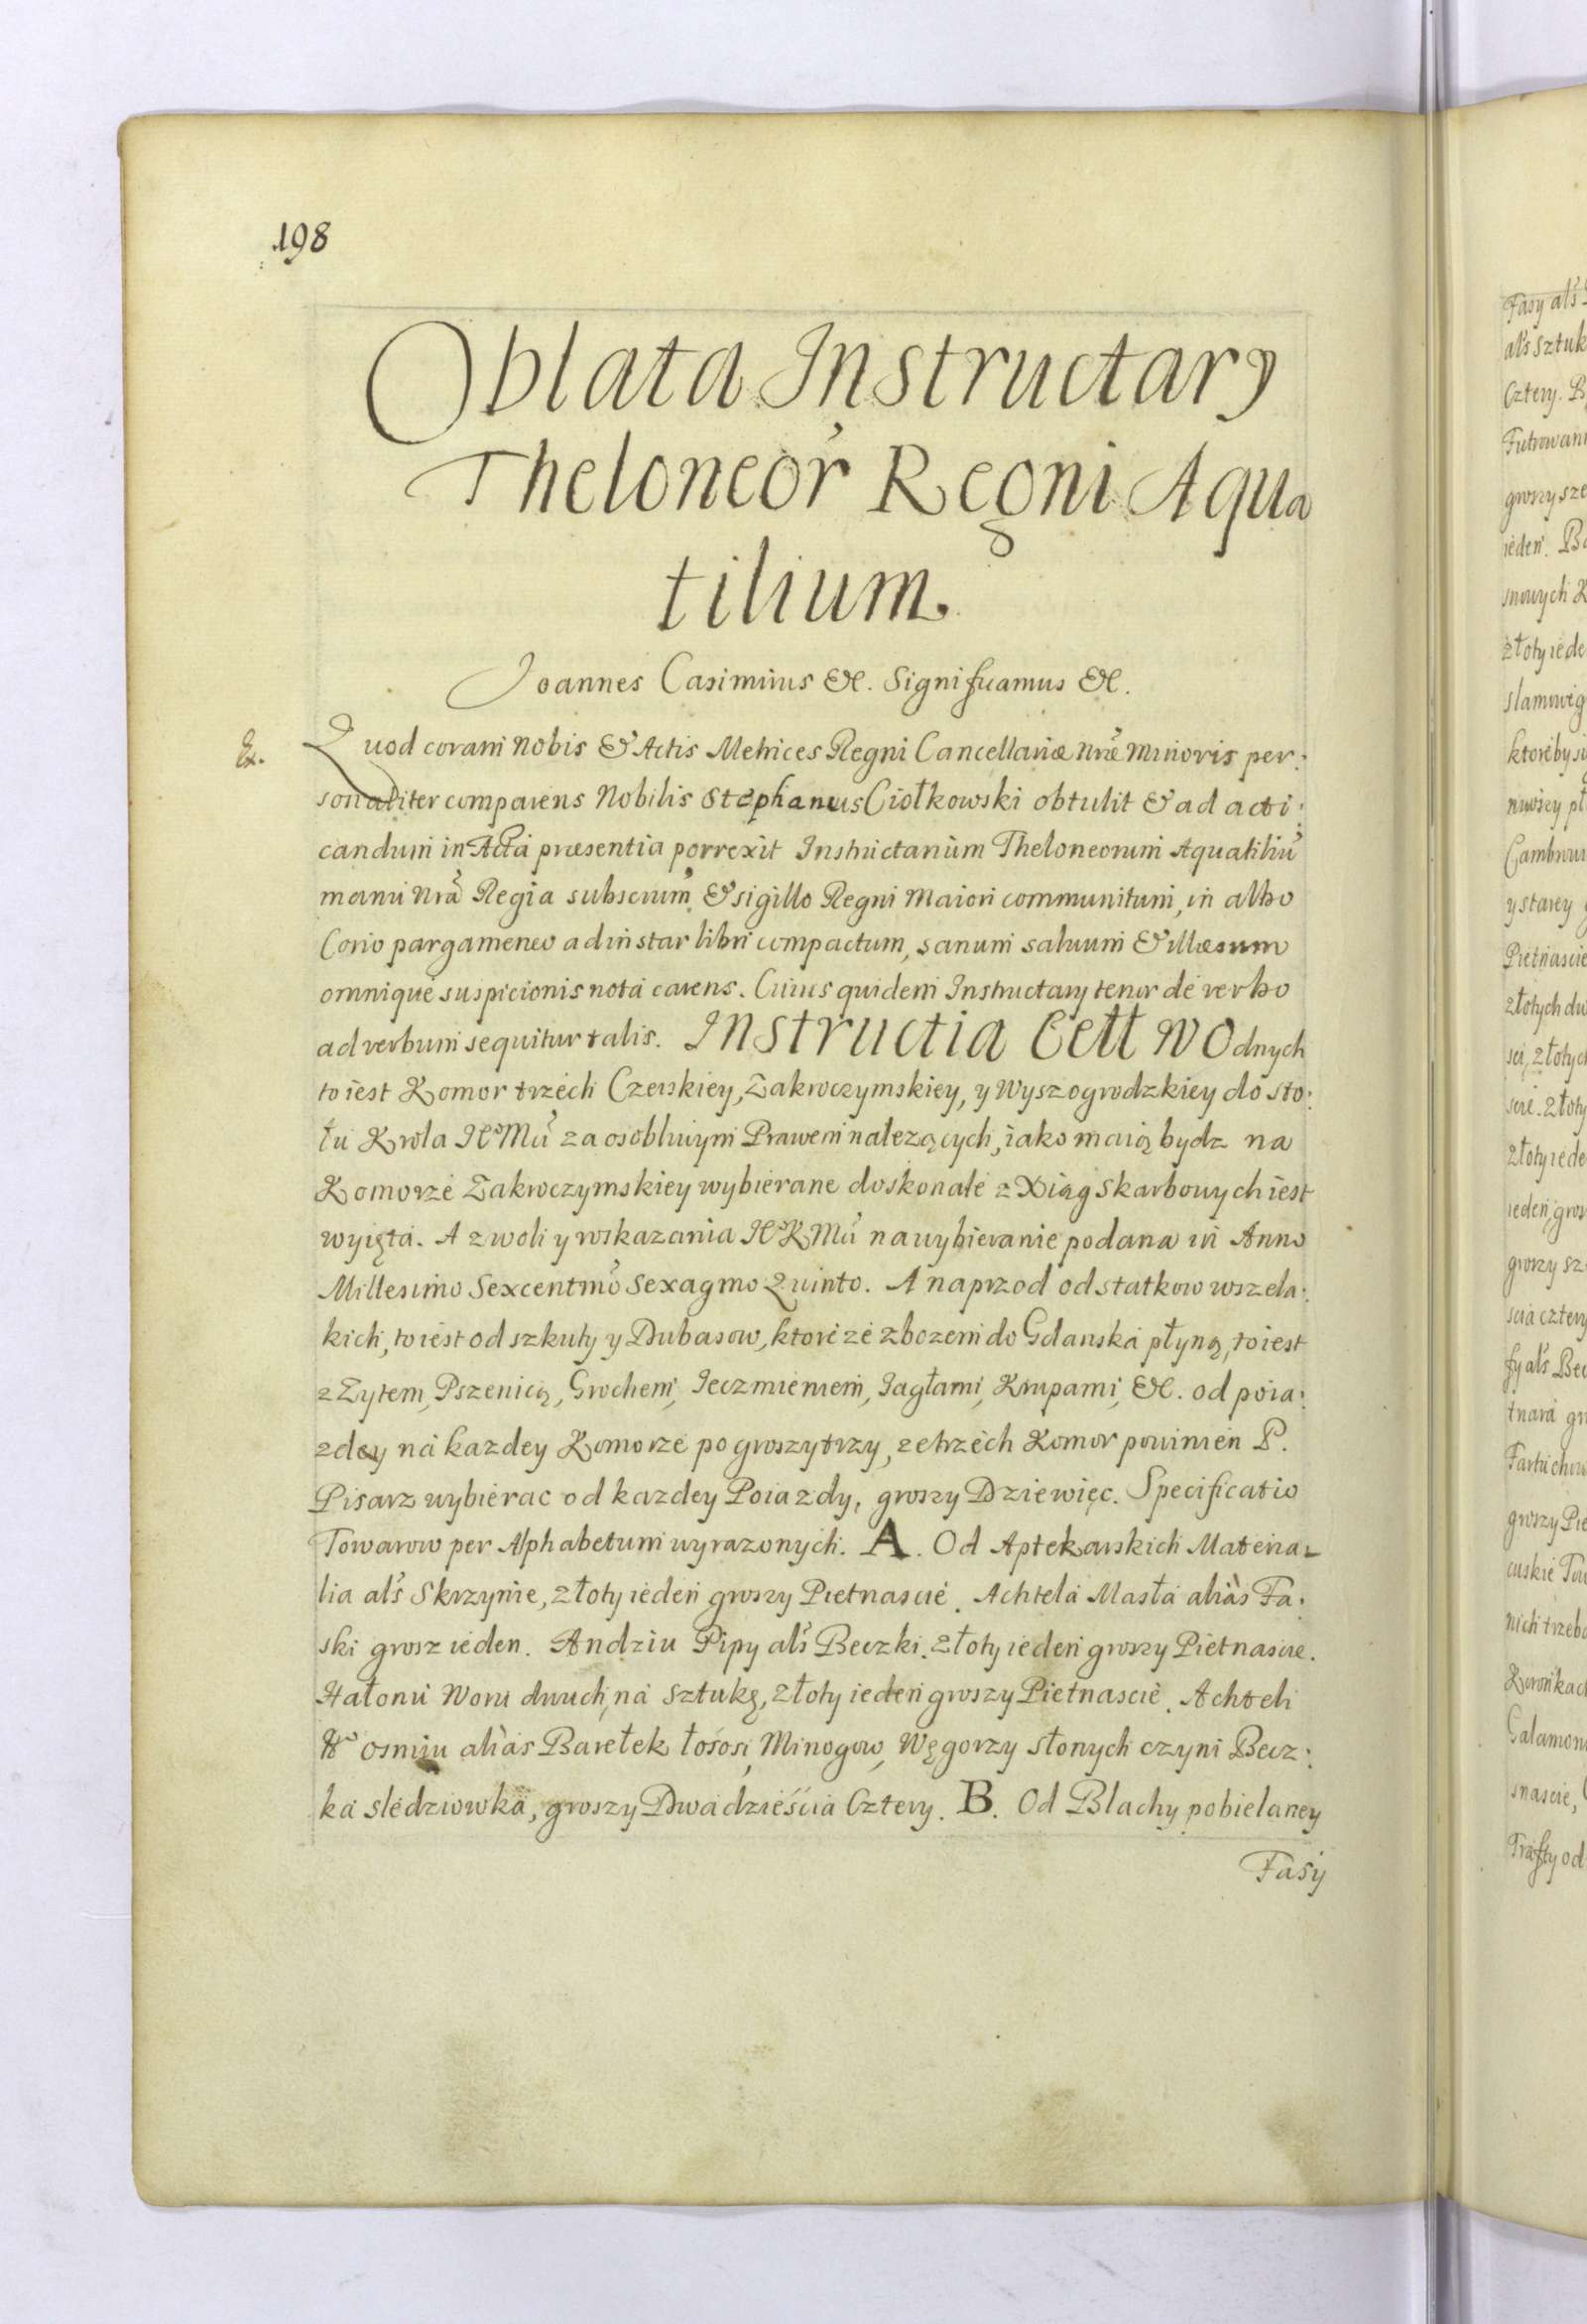 198
Oblata Instructary
Theloneor̃ Regni Aqua
tilium.
Joannes Casimirus &c. Significamus &c.
Ex.
Quod coram Nobis & Actis Metrices Regni Cancellariæ Nræ Minoris per:
sonaliter comparens Nobilis Stephanus Ciołkowski obtulit & ad acti:
candum in Acta præsentia porrexit Instructarium Theloneorum Aquatiliũ
manu Nrã Regia subscrium̃ & sigillo Regni Maiori communitum, in albo
Corio pargameneo ad instar libri compactum, sanum saluum & illæsum
omnique suspicionis nota carens. Cuius quidem Instructary tenor de verbo
ad verbum sequitur talis. Instructia Cełł Wodnych
to iest Komor trzech Czerskiey, Zakroczymskiey, y Wyszogrodzkiey do sto:
łu Krola JKMći za osobliwym Prawem nalezących, iako maią bydz na
Komorze Zakroczymskiey wybierane doskonale z Xiąg Skarbowych iest
wyięta. A z woli y roskazania JKMći na wybieranie podana in Anno
Millesimo Sexcentmõ Sexagmo Quinto. A naprzod od statkow wszela:
kich, to iest od szkuty y Dubasow, ktore ze zbozem do Gdanska płyną, to iest
z Zytem, Pszenicą, Grochem, Ieczmieniem, Jagłami, Krupami, &c. od poia:
zdey na kazdey Komorze po groszy trzy, ze trzech Komor powinien P.
Pisarz wybierac od kazdey Poiazdy, groszy Dziewięc. Specificatio
Towarow per Alphabetum wyrazonych. A. Od Aptekarskich Materia-
lia al's Skrzynie, złoty ieden groszy Pietnascie. Achtela Masła aliàs Fa:
ski grosz ieden. Andziu Pipy al's Beczki. złoty ieden groszy Pietnascie.
Hałonu Woru dwuch, na sztukę, złoty ieden groszy Pietnascie. Achteli
osmiu aliàs Barełek łososi, Minogow, Węgorzy słonych czyni Becz:
ka sledziowka, groszy Dwadzieścia Cztery. B. Od Blachy pobielaney
Fasy